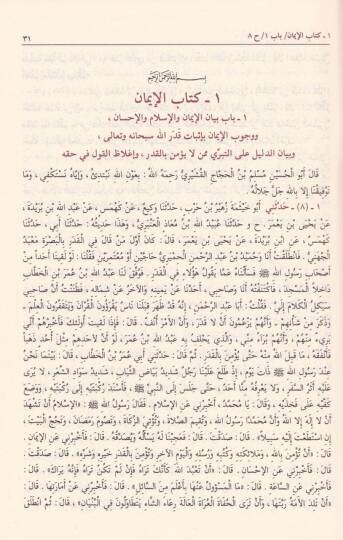 ١ - كتاب الإيمان/ باب ١/ ح ٨
٣١
بِسْمِ اللهِ الرَّحْمٰنِ الرَّحِيْمِ
١ - كتاب الإيمان
١ - باب بيان الإيمان والإسلام والإحسان ،
ووجوب الإيمان بإثبات قدَر الله سبحانه وتعالى ،
وبيان الدليل على التبرّي ممن لا يؤمن بالقدر، وإغلاظ القول في حقه
قَالَ أَبُو الْحُسَيْنِ مُسْلِمُ بْنُ الْحَجَّاجِ الْقُشَيْرِيُّ رَحِمَهُ اللهُ : بِعَوْنِ اللهِ نَبْتَدِئُ، وَإِيَّاهُ نَسْتَكْفِي، وَمَا
تَوْفِيقُنَا إِلَّا بِاللهِ جَلَّ جَلَالُهُ .
١ - (٨) - حَدَّثَنِي أَبُو خَيْثَمَةَ زُهَيْرُ بْنُ حَرْبٍ ، حَدَّثَنَا وَكِيعٌ ، عَنْ كَهْمَسٍ ، عَنْ عَبْدِ اللهِ بْنِ بُرَيْدَةَ ،
عَنْ يَحْيَى بْنِ يَعْمَرَ. ح وَ حَدَّثَنَا عُبَيْدُ اللهِ بْنُ مُعَاذٍ الْعَنْبَرِيُّ ، وَهَذَا حَدِيثُهُ : حَدَّثَنَا أَبِي ، حَدَّثَنَا
كَهْمَسٌ ، عَنِ ابْنِ بُرَيْدَةَ ، عَنْ يَحْيَى بْنِ يَعْمَرَ، قَالَ : كَانَ أَوَّلَ مَنْ قَالَ فِي الْقَدَرِ بِالْبَصْرَةِ مَعْبَدٌ
الْجُهَنِيُّ . فَانْطَلَقْتُ أَنَا وَحُمَيْدُ بْنُ عَبْدِ الرَّحْمَنِ الْحِمْيَرِيُّ حَاجَّيْنِ أَوْ مُعْتَمِرَيْنِ فَقُلْنَا : لَوْ لَقِينَا أَحَداً مِنْ
أَصْحَابِ رَسُولِ اللهِ ﷺ فَسَأَلْنَاهُ عَمَّا يَقُولُ هَؤُلَاءِ فِي الْقَدَرِ . فَوُفِّقَ لَنَا عَبْدُ اللهِ بْنُ عُمَرَ بْنِ الْخَطَّابِ
دَاخِلاً الْمَسْجِدَ ، فَاكْتَنَفْتُهُ أَنَا وَصَاحِبِي ، أَحَدُنَا عَنْ يَمِينِهِ وَالآخَرُ عَنْ شِمَالِهِ ، فَظَنَنْتُ أَنَّ صَاحِبِي
سَيَكِلُ الْكَلَامَ إِلَيَّ . فَقُلْتُ : أَبَا عَبْدِ الرَّحْمَنِ ، إِنَّهُ قَدْ ظَهَرَ قِبَلَنَا نَاسٌ يَقْرَؤُونَ الْقُرْآنَ وَيَتَقَفَّرُونَ الْعِلْمَ ـ
وَذَكَرَ مِنْ شَأْنِهِمْ ـ وَأَنَّهُمْ يَزْعُمُونَ أَنْ لَا قَدَرَ ، وَأَنَّ الأَمْرَ أُنُفٌ . قَالَ : فَإِذَا لَقِيتَ أُولَئِكَ فَأَخْبِرْهُمْ أَنِّي
بَرِيءٌ مِنْهُمْ ، وَأَنَّهُمْ بُرَآءُ مِنِّي ، وَالَّذِي يَحْلِفُ بِهِ عَبْدُ اللهِ بْنُ عُمَرَ، لَوْ أَنَّ لأَحَدِهِمْ مِثْلَ أُحُدٍ ذَهَباً
فَأَنْفَقَهُ ، مَا قَبِلَ اللهُ مِنْهُ حَتَّى يُؤْمِنَ بِالْقَدَرِ . ثُمَّ قَالَ : حَدَّثَنِي أَبِي عُمَرُ بْنُ الْخَطَّابِ ، قَالَ : بَيْنَمَا نَحْنُ
عِنْدَ رَسُولِ اللهِ ﷺ ذَاتَ يَوْمٍ ، إِذْ طَلَعَ عَلَيْنَا رَجُلٌ شَدِيدُ بَيَاضِ الثِّيَابِ ، شَدِيدُ سَوَادِ الشَّعَرِ ، لَا يُرَى
عَلَيْهِ أَثَرُ السَّفَرِ ، وَلَا يَعْرِفُهُ مِنَّا أَحَدٌ ، حَتَّى جَلَسَ إِلَى النَّبِيِّ ﷺ ، فَأَسْنَدَ رُكْبَتَيْهِ إِلَى رُكْبَتَيْهِ ، وَوَضَعَ
كَفَّيْهِ عَلَى فَخِذَيْهِ ، وَقَالَ : يَا مُحَمَّدُ ، أَخْبِرْنِي عَنِ الإِسْلَامِ . فَقَالَ رَسُولُ اللهِ ﷺ : «الإِسْلَامُ أَنْ تَشْهَدَ
أَنْ لَا إِلَهَ إِلَّا اللهُ وَأَنَّ مُحَمَّداً رَسُولُ اللهِ ، وَتُقِيمَ الصَّلَاةَ ، وَتُؤْتِيَ الزَّكَاةَ ، وَتَصُومَ رَمَضَانَ ، وَتَحُجَّ الْبَيْتَ ،
إِنِ اسْتَطَعْتَ إِلَيْهِ سَبِيلاً» . قَالَ : صَدَقْتَ . قَالَ : فَعَجِبْنَا لَهُ يَسْأَلُهُ وَيُصَدِّقُهُ . قَالَ : فَأَخْبِرْنِي عَنِ الإِيمَانِ .
قَالَ : «أَنْ تُؤْمِنَ بِاللهِ ، وَمَلَائِكَتِهِ وَكُتُبِهِ وَرُسُلِهِ وَالْيَوْمِ الآخِرِ وَتُؤْمِنَ بِالْقَدَرِ خَيْرِهِ وَشَرِّهِ» . قَالَ : صَدَقْتَ .
قَالَ : فَأَخْبِرْنِي عَنِ الإِحْسَانِ . قَالَ : «أَنْ تَعْبُدَ اللهَ كَأَنَّكَ تَرَاهُ فَإِنْ لَمْ تَكُنْ تَرَاهُ فَإِنَّهُ يَرَاكَ» . قَالَ :
فَأَخْبِرْنِي عَنِ السَّاعَةِ . قَالَ : «مَا الْمَسْؤُولُ عَنْهَا بِأَعْلَمَ مِنَ السَّائِلِ» . قَالَ : فَأَخْبِرْنِي عَنْ أَمَارَتِهَا . قَالَ :
«أَنْ تَلِدَ الأَمَةُ رَبَّتَهَا ، وَأَنْ تَرَى الْحُفَاةَ الْعُرَاةَ الْعَالَةَ رِعَاءَ الشَّاءِ يَتَطَاوَلُونَ فِي الْبُنْيَانِ» ، قَالَ : ثُمَّ انْطَلَقَ